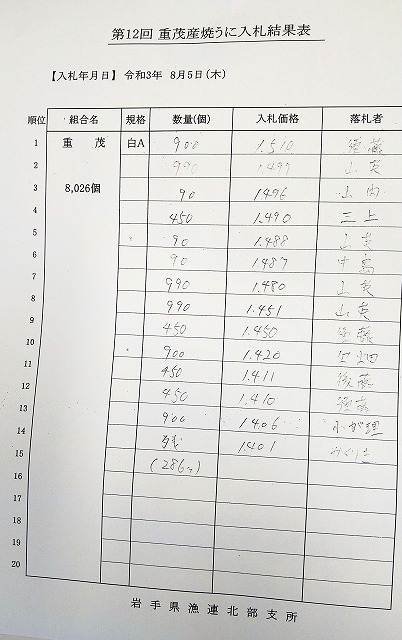 第12回 重茂産焼うに入札結果表
【入札年月日】 令和3年 8月5日(木)
順位 組合名 規格 数量(個) 入札価格 落札者
1 重茂 白A 900 1.510 後藤
2 990 1.497 山英
3 8,026個 90 1496 山内
4 450 1.490 三上
5 90 1.488 山英
6 90 1.487 中島
7 990 1.480 山英
8 990 1.451 山英
9 450 1.450 後藤
10 900 1.420
11 450 1.411 後藤
12 450 1.410 後藤
13 900 1.406
14 残 1.401
15 (286ヶ)
16
17
18
19
20
岩手県漁連北部支所